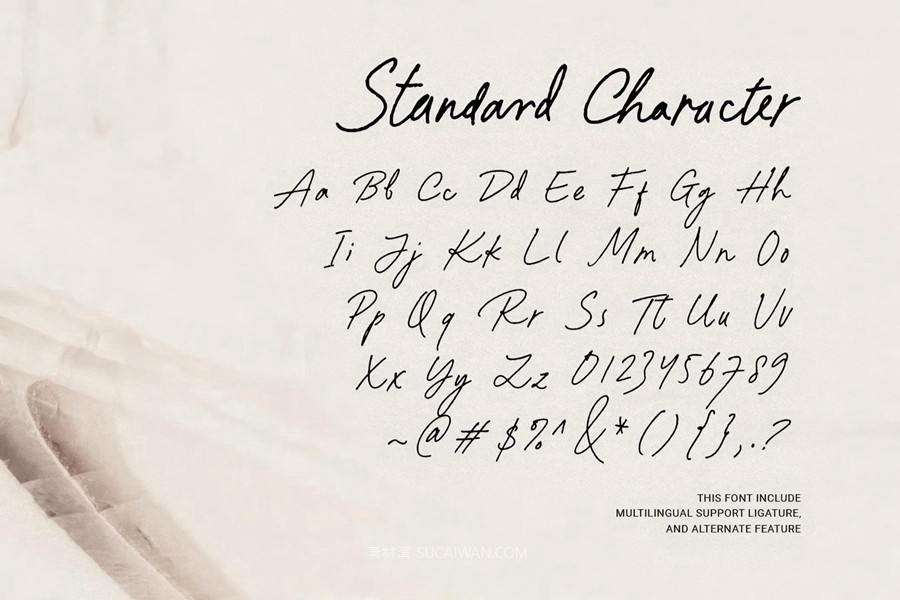 Standard Character
Aa Bb Cc Dd Ee Ff Gg Hh
Ii Jj Kk Ll Mm Nn Oo
Pp Qq Rr Ss Tt Uu Vv
Xx Yy Zz 0123456789
~@# $%^&*(){},.?
THIS FONT INCLUDE
MULTILINGUAL SUPPORT LIGATURE,
AND ALTERNATE FEATURE
素材湾 SUCAIWAN.COM